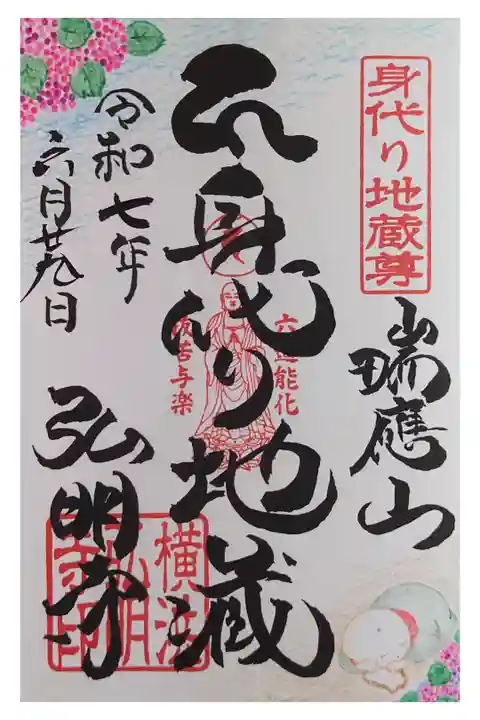 身代り地蔵尊
瑞應山
身代り地蔵
六道能化
抜苦与楽
弘明寺
令和七年
六月廿九日
横浜
弘明
寺印